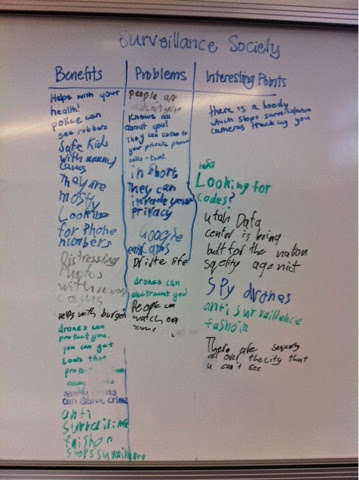 Surveillance Society
Benefits
Helps with your
health!
police can
see robbers
Safe Kids
with nanny
cams
They are
mostly
Looking
for Phone
numbers
Distressing
Photos
with nanny
cams
helps with burgers
drones can
protect you.
you can get
Looks that
nanny cams
can solve crime
anti
surveiline
fashon
stops surveillance
Problems
people are
Knows all
about you!
They can listen to
your private phone
calls + text.
in shops
They can
invade your
privacy
Google
Private life
drones can
People can
watch our
Interesting Points
there is a hoody
which stops surveillance
cameras tracking you
Looking for
codes?
utah Data
center is being
built for the nation
Spy drones
anti surveillance
fashoin
There are
all over the city that
u can't see